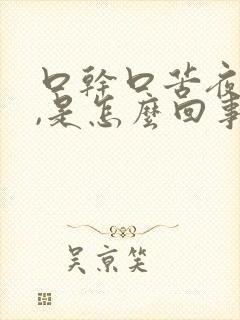 口幹口苦夜
,是怎麽回事
吴京笑